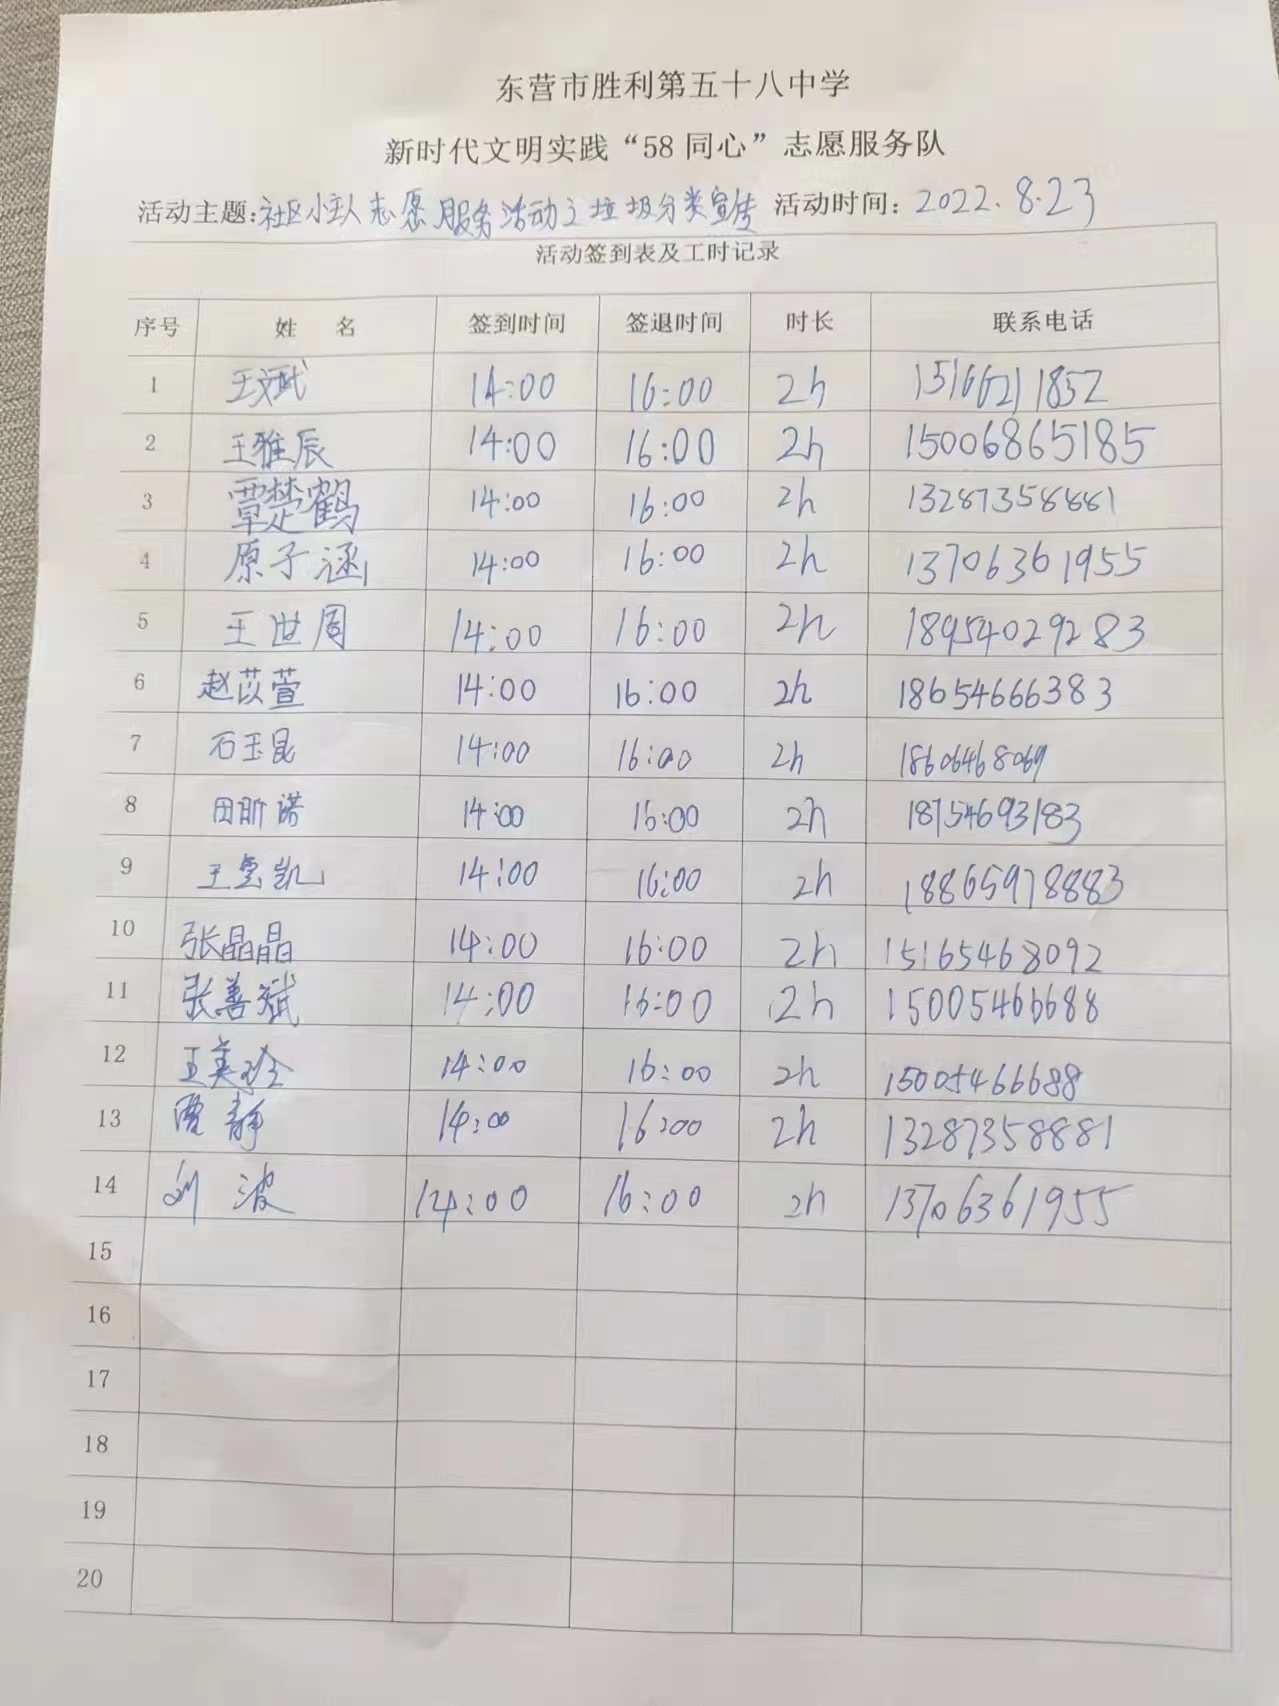 东营市胜利第五十八中学
新时代文明实践“58同心”志愿服务队
活动主题:社区小主人志愿服务活动之垃圾分类宣传 活动时间: 2022.8.23
活动签到表及工时记录
序号 姓 名 签到时间 签退时间 时长 联系电话
1 王斌 14:00 16:00 2h 15166211852
2 王雅辰 14:00 16:00 2h 15006865185
3 覃楚鹤 14:00 16:00 2h 13287358881
4 原子涵 14:00 16:00 2h 13706361955
5 王世周 14:00 16:00 2h 18954029283
6 赵苡萱 14:00 16:00 2h 18654666383
7 石玉昆 14:00 16:00 2h 18606468069
8 田昕诺 14:00 16:00 2h 18754693183
9 王凯 14:00 16:00 2h 18865978883
10 张晶晶 14:00 16:00 2h 15165468092
11 张善斌 14:00 16:00 2h 15005466688
12 王美玲 14:00 16:00 2h 15005466688
13 静 14:00 16:00 2h 13287358881
14 刘波 14:00 16:00 2h 13706361955
15
16
17
18
19
20